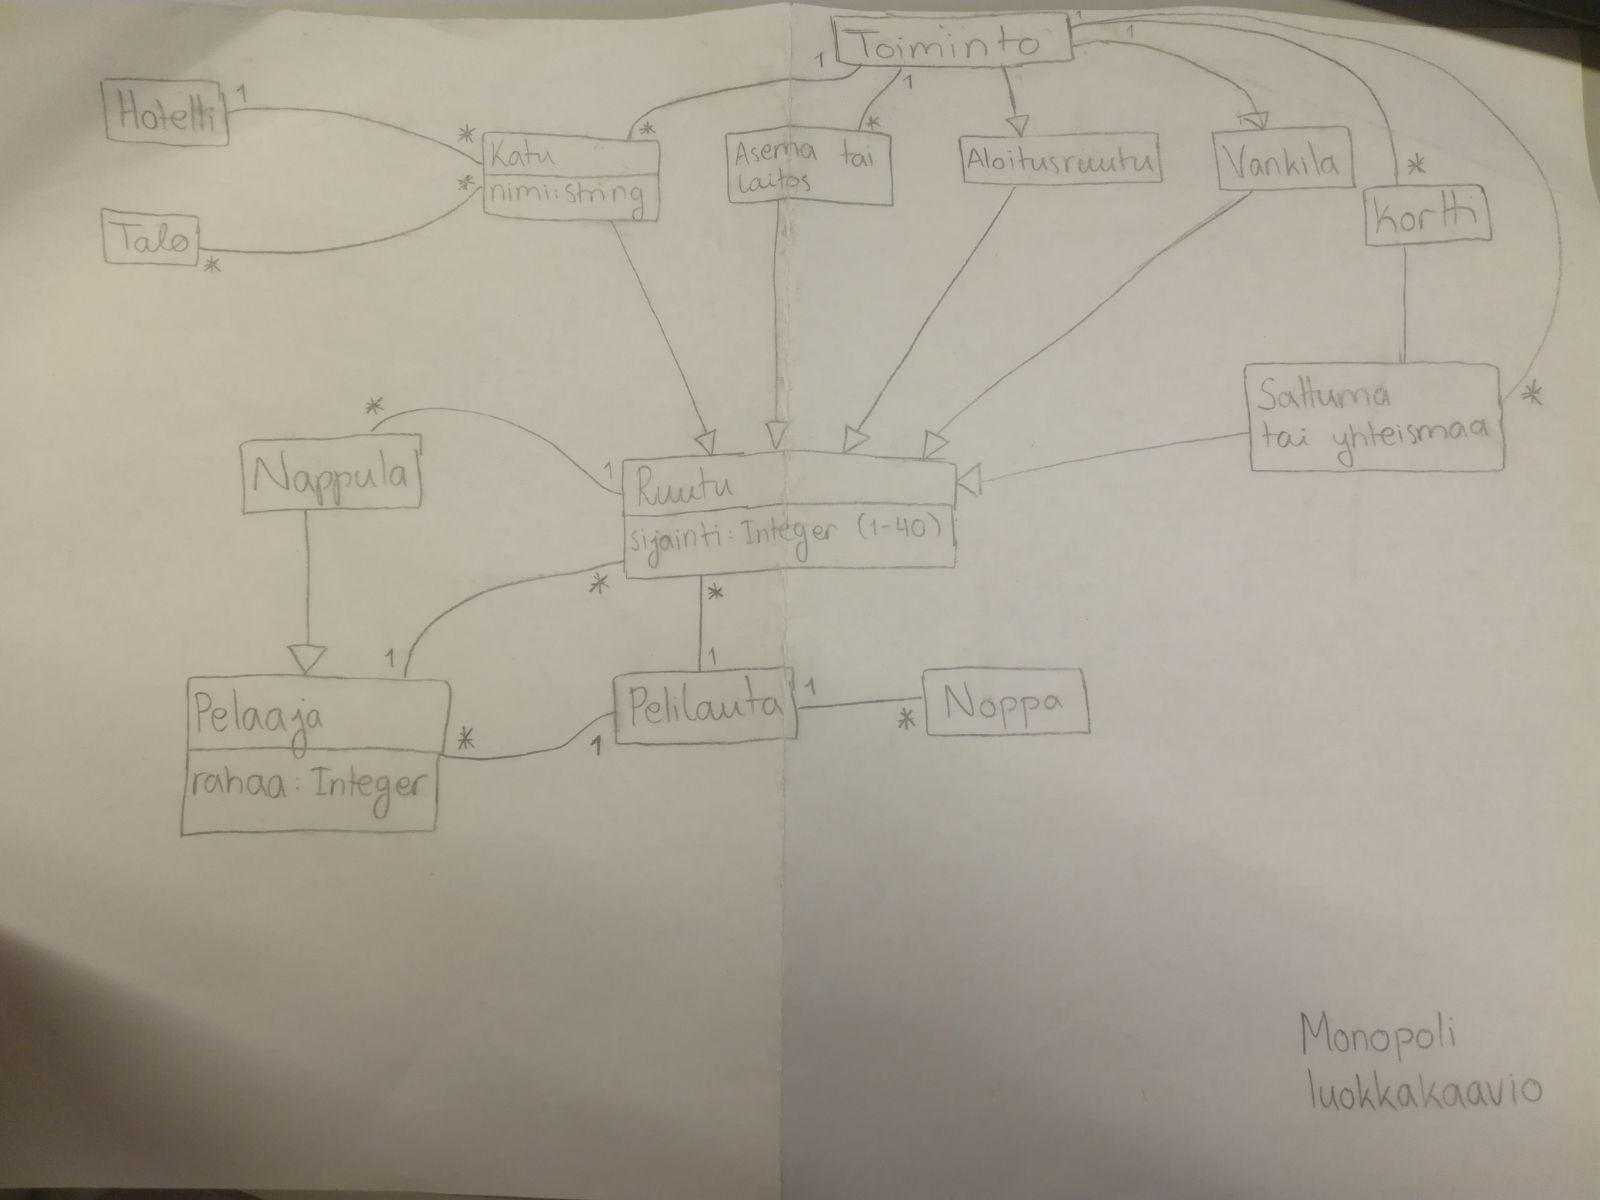 Toiminto
1
1
1
1
Hotelli
1
*
Katu
nimi: string
*
*
Talo
*
Asema tai
laitos
*
Aloitusruutu
Vankila
*
Kortti
Sattuma
tai yhteismaa
*
*
Nappula
1
Ruutu
sijainti: Integer (1-40)
*
*
1
1
Pelaaja
rahaa: Integer
*
1
Pelilauta
1
*
Noppa
Monopoli
luokkakaavio